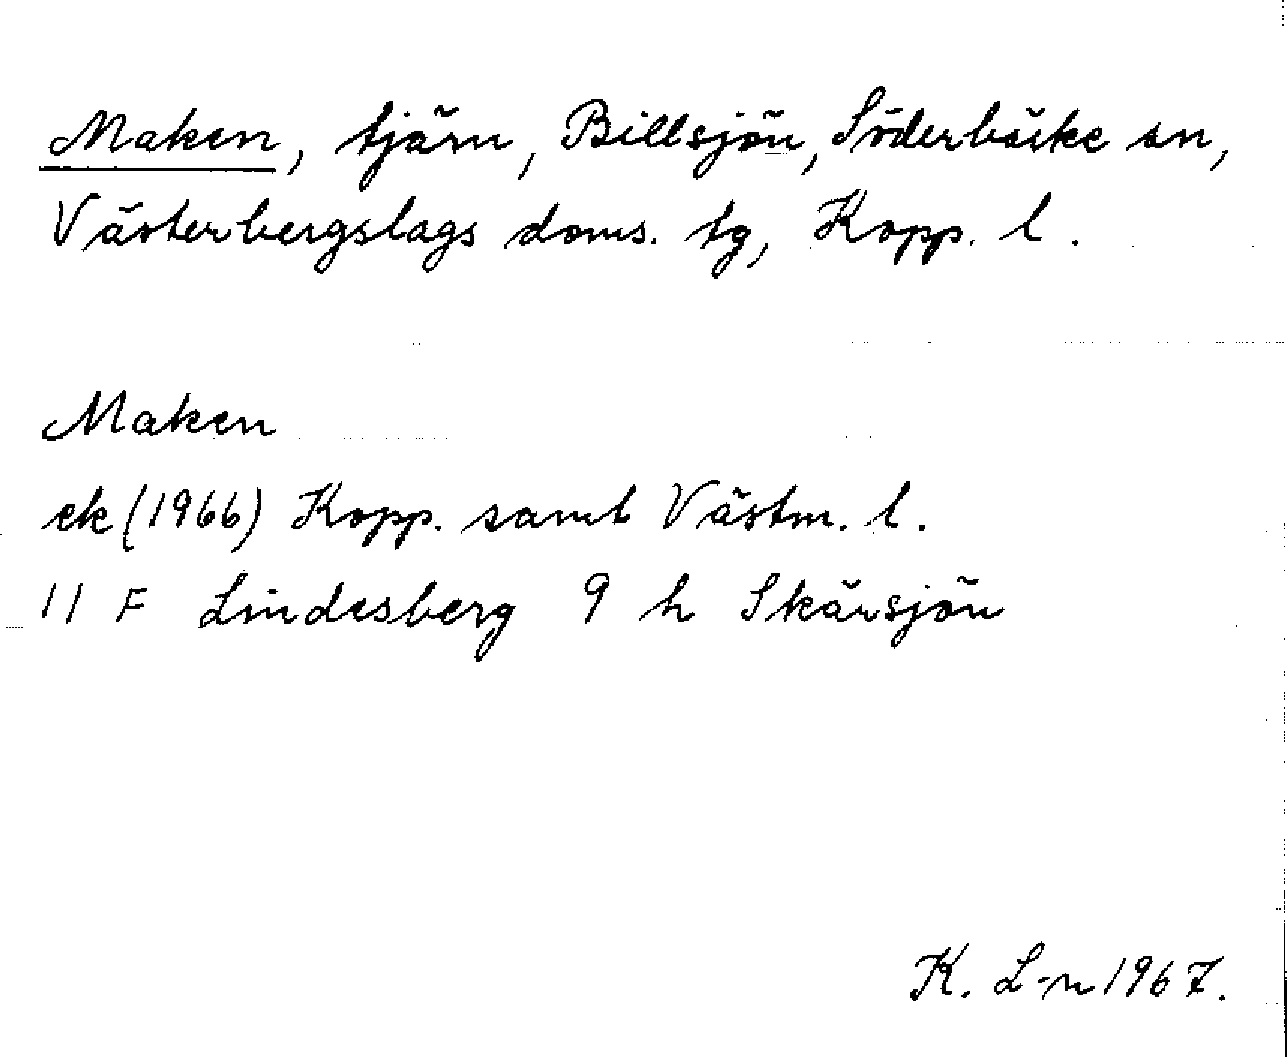 Maken, tjärn, Billsjön, Söderbärke sn,
Västerbergslags doms. tg, Kopp. l.
Maken
ek (1966) Kopp. samt Västm. l.
11 F Lindesberg 9 h Skärsjön
K. L-n 1967.